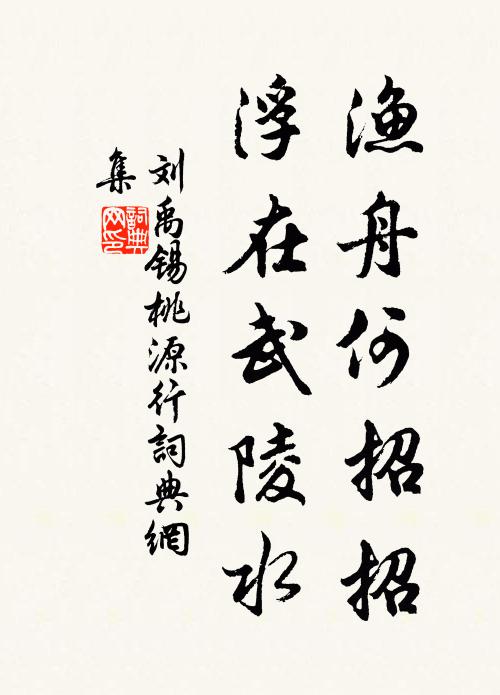 渔舟何招招
浮在武陵水
刘禹锡桃源行詞典網
集
詞典网印